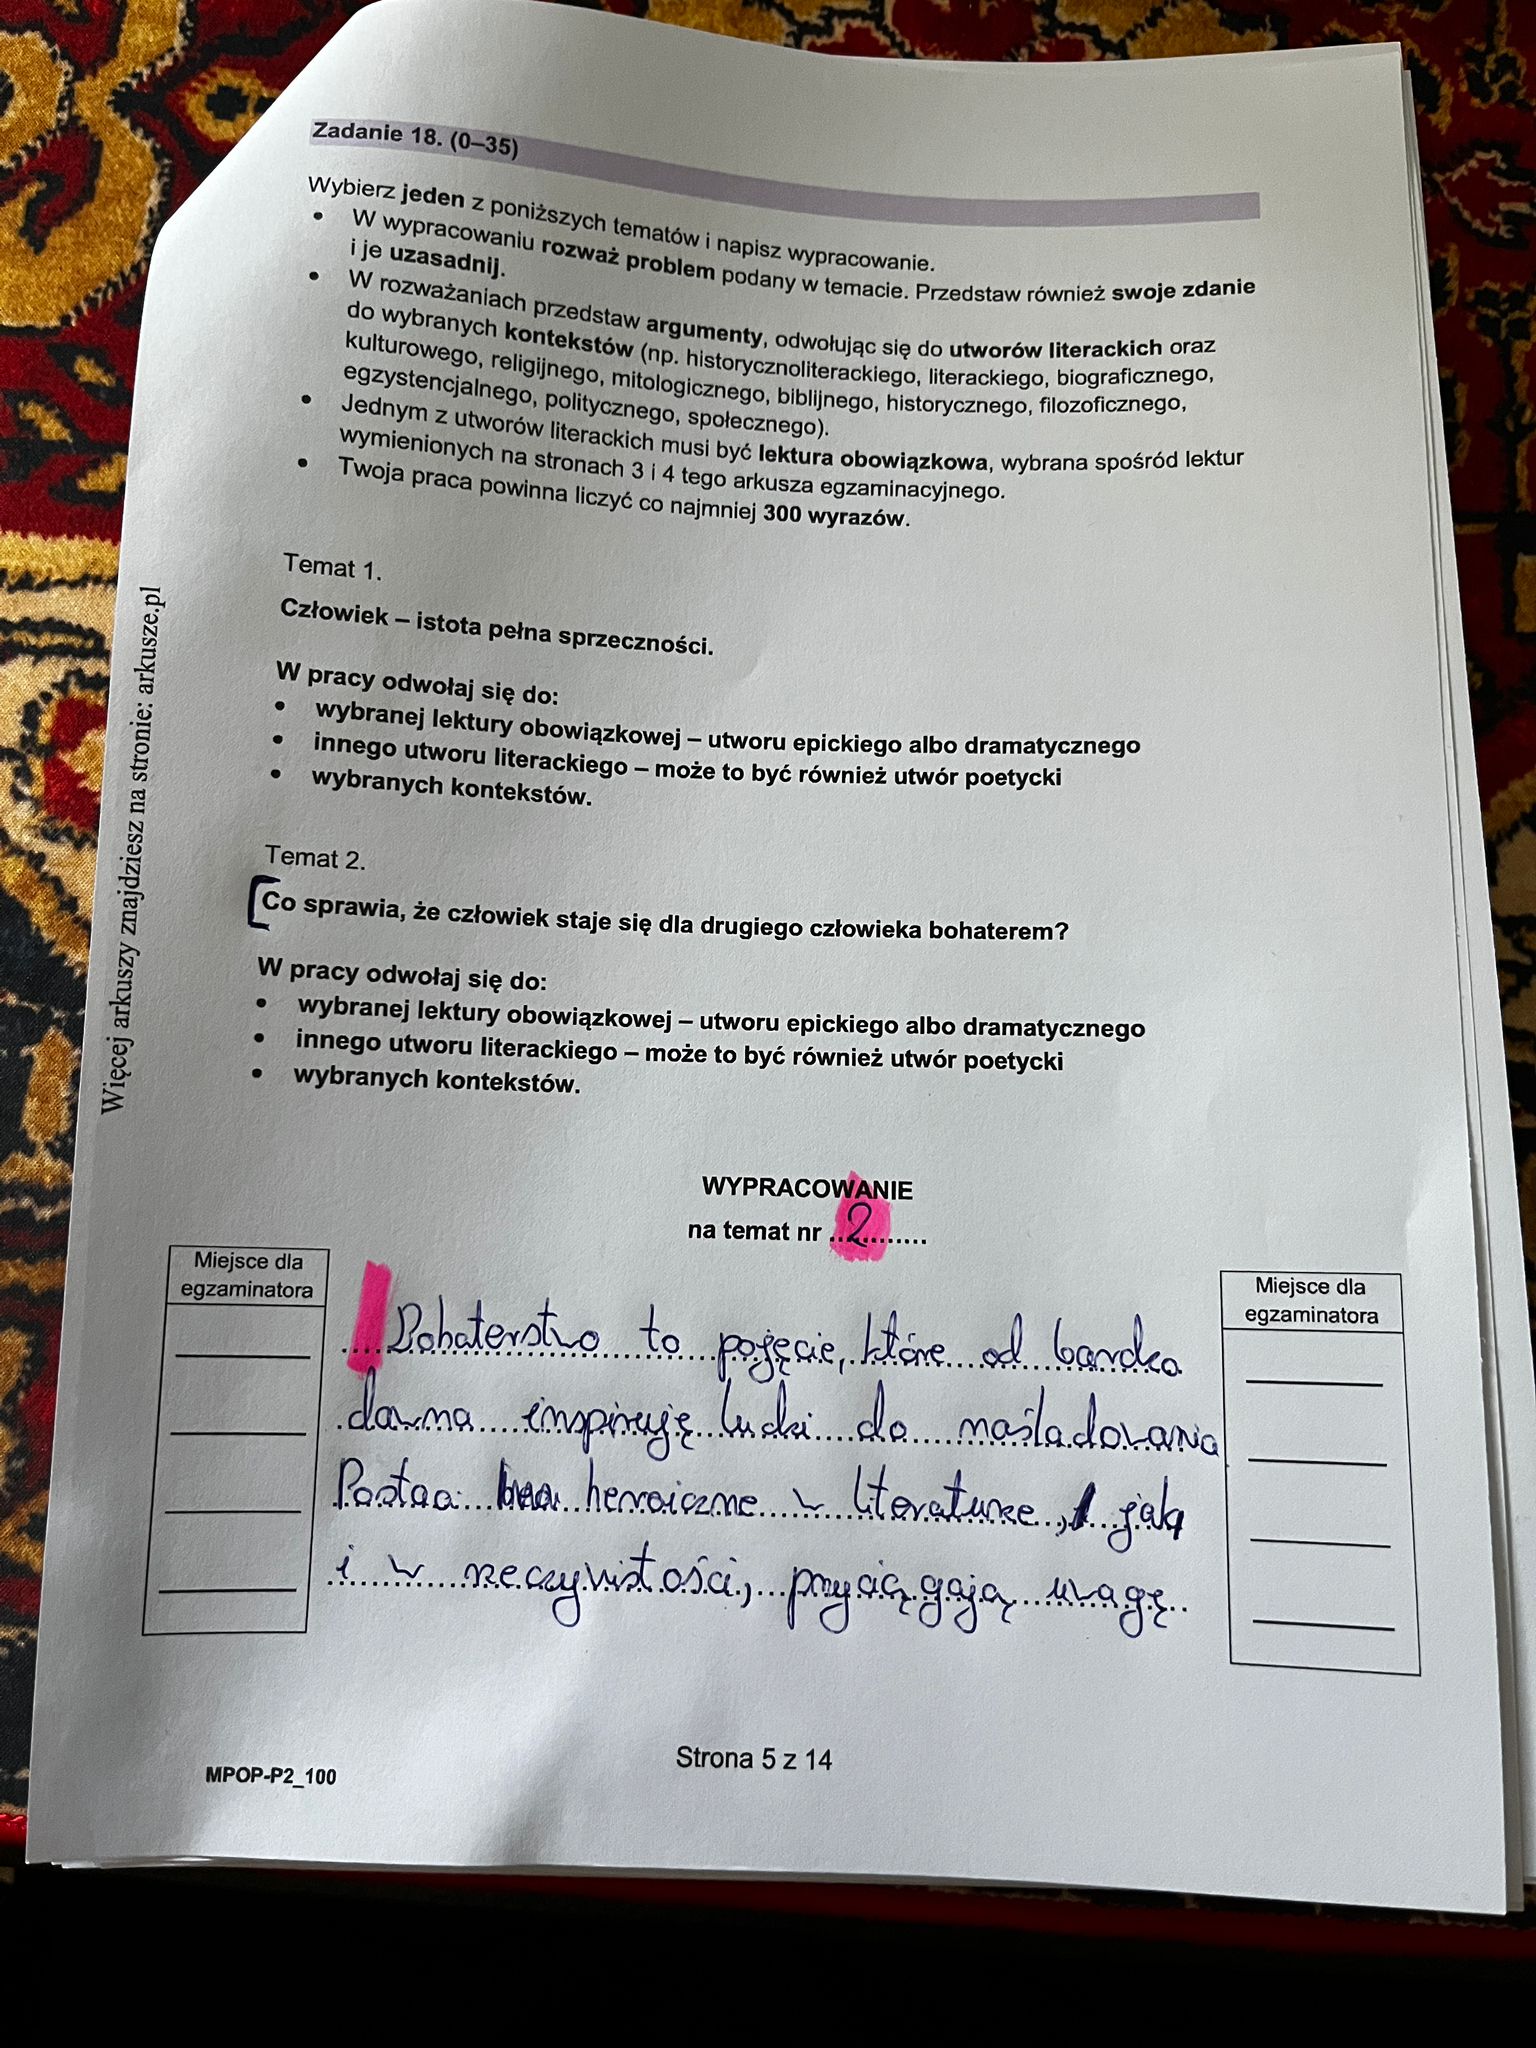 Zadanie 18. (0–35)
Wybierz jeden z poniższych tematów i napisz wypracowanie.
• W wypracowaniu rozważ problem podany w temacie. Przedstaw również swoje zdanie
i je uzasadnij.
• W rozważaniach przedstaw argumenty, odwołując się do utworów literackich oraz
do wybranych kontekstów (np. historycznoliterackiego, literackiego, biograficznego,
kulturowego, religijnego, mitologicznego, biblijnego, historycznego, filozoficznego,
egzystencjalnego, politycznego, społecznego).
• Jednym z utworów literackich musi być lektura obowiązkowa, wybrana spośród lektur
wymienionych na stronach 3 i 4 tego arkusza egzaminacyjnego.
• Twoja praca powinna liczyć co najmniej 300 wyrazów.
Temat 1.
Człowiek – istota pełna sprzeczności.
W pracy odwołaj się do:
• wybranej lektury obowiązkowej – utworu epickiego albo dramatycznego
• innego utworu literackiego – może to być również utwór poetycki
• wybranych kontekstów.
Temat 2.
Co sprawia, że człowiek staje się dla drugiego człowieka bohaterem?
W pracy odwołaj się do:
• wybranej lektury obowiązkowej – utworu epickiego albo dramatycznego
• innego utworu literackiego – może to być również utwór poetycki
• wybranych kontekstów.
Więcej arkuszy znajdziesz na stronie: arkusze.pl
WYPRACOWANIE
na temat nr 2
Miejsce dla
egzaminatora
Miejsce dla
egzaminatora
Bohaterstwo to pojęcie, które od bardzo
dawna inspiruję ludzi do naśladowania
Postaci heroiczne w literaturze, jak
i w rzeczywistości, przyciągają uwagę
Strona 5 z 14
MPOP-P2_100